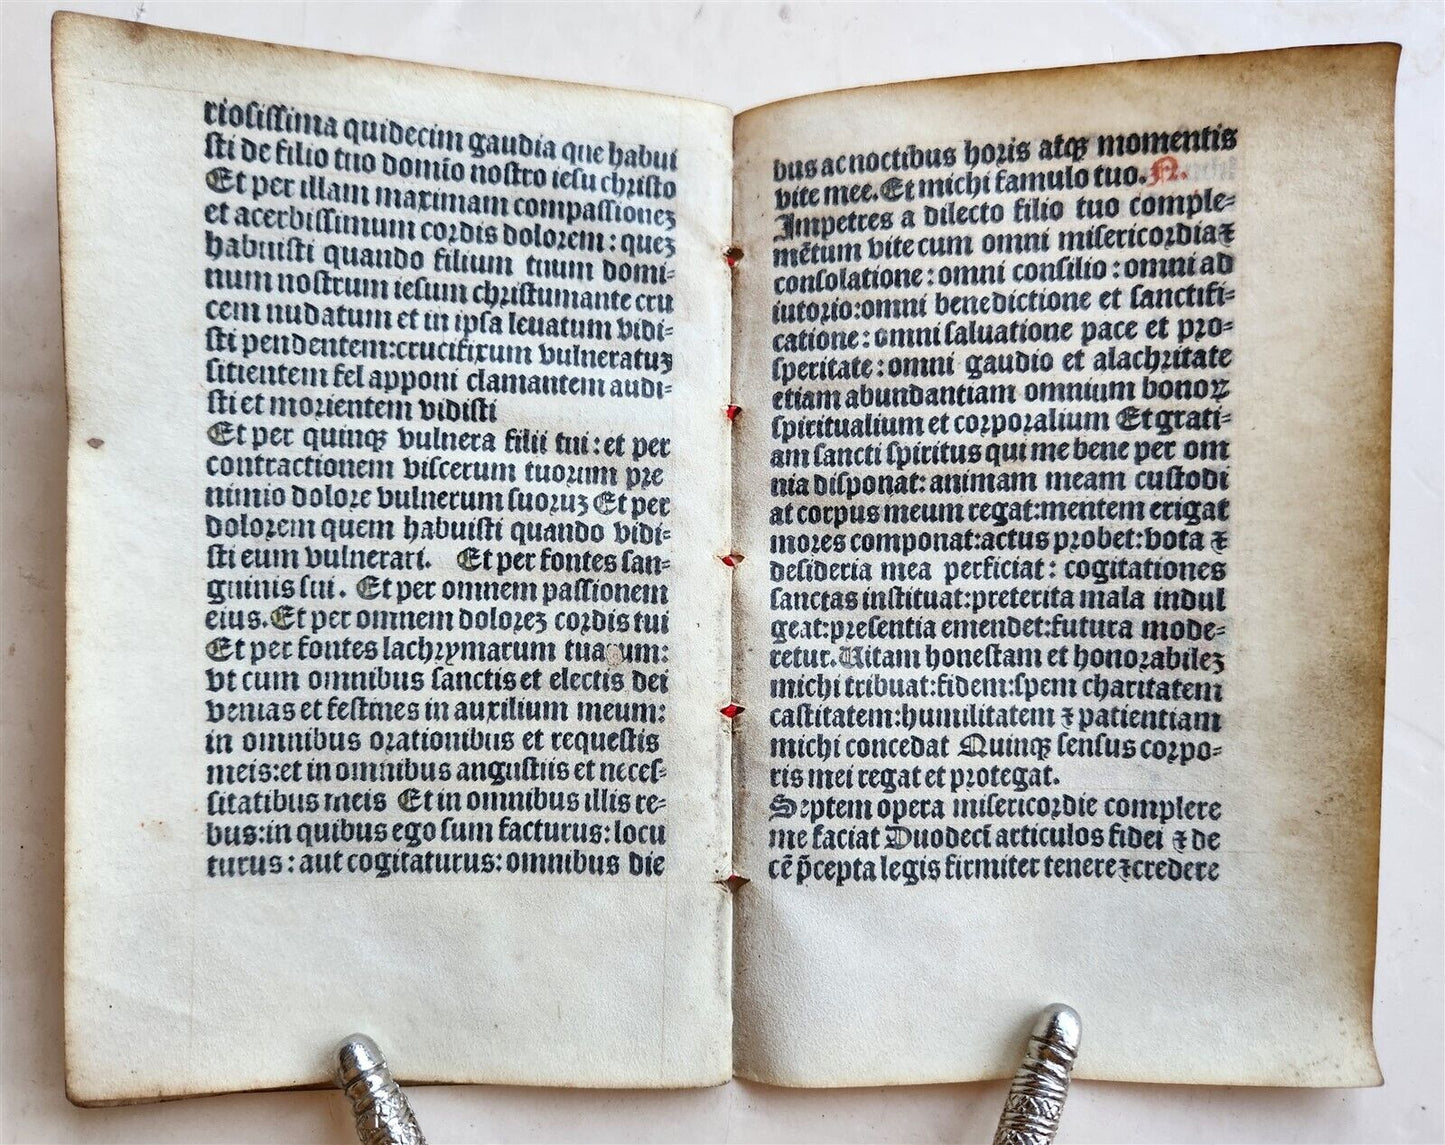 riosissima quidecim gaudia que habui
sti de filio tuo domĩo nostro iesu christo
Et per illam maximam compassionez
et acerbissimum cordis dolorem: quez
habuisti quando filium tuum domi=
num nostrum iesum christumante cru
cem nudatum et in ipsa leuatum vidi=
sti pendentem:crucifixum vulneratuz
sitientem fel apponi clamantem audi=
sti et morientem vidisti
Et per quinqꝫ vulnera filii tui: et per
contractionem viscerum tuorum pre
nimio dolore vulnerum suoruz Et per
dolorem quem habuisti quando vidi=
sti eum vulnerari. Et per fontes san=
guinis sui. Et per omnem passionem
eius. Et per omnem dolorez cordis tui
Et per fontes lachrymarum tuarum:
vt cum omnibus sanctis et electis dei
venias et festines in auxilium meum:
in omnibus orationibus et requestis
meis:et in omnibus angustiis et neces=
sitatibus meis Et in omnibus illis re=
bus:in quibus ego sum facturus: locu
turus: aut cogitaturus: omnibus die
bus ac noctibus horis atqꝫ momentis
vite mee. Et michi famulo tuo. N.
Impetres a dilecto filio tuo comple=
mẽtum vite cum omni misericordia ⁊
consolatione: omni consilio: omni ad
iutorio:omni benedictione et sanctifi=
catione: omni saluatione pace et pro=
speritate: omni gaudio et alachritate
etiam abundantiam omnium bonoꝝ
spiritualium et corporalium Et grati=
am sancti spiritus qui me bene per om
nia disponat: animam meam custodi
at corpus meum regat:mentem erigat
mores componat:actus probet:vota ⁊
desideria mea perficiat: cogitationes
sanctas instituat:preterita mala indul
geat:presentia emendet:futura mode=
retur. Uitam honestam et honorabilez
michi tribuat:fidem:spem charitatem
castitatem:humilitatem ⁊ patientiam
michi concedat Quinqꝫ sensus corpo=
ris mei regat et protegat.
Septem opera misericordie complere
me faciat Duodecĩ articulos fidei ⁊ de
cẽ p̃cepta legis firmiter tenere ⁊credere